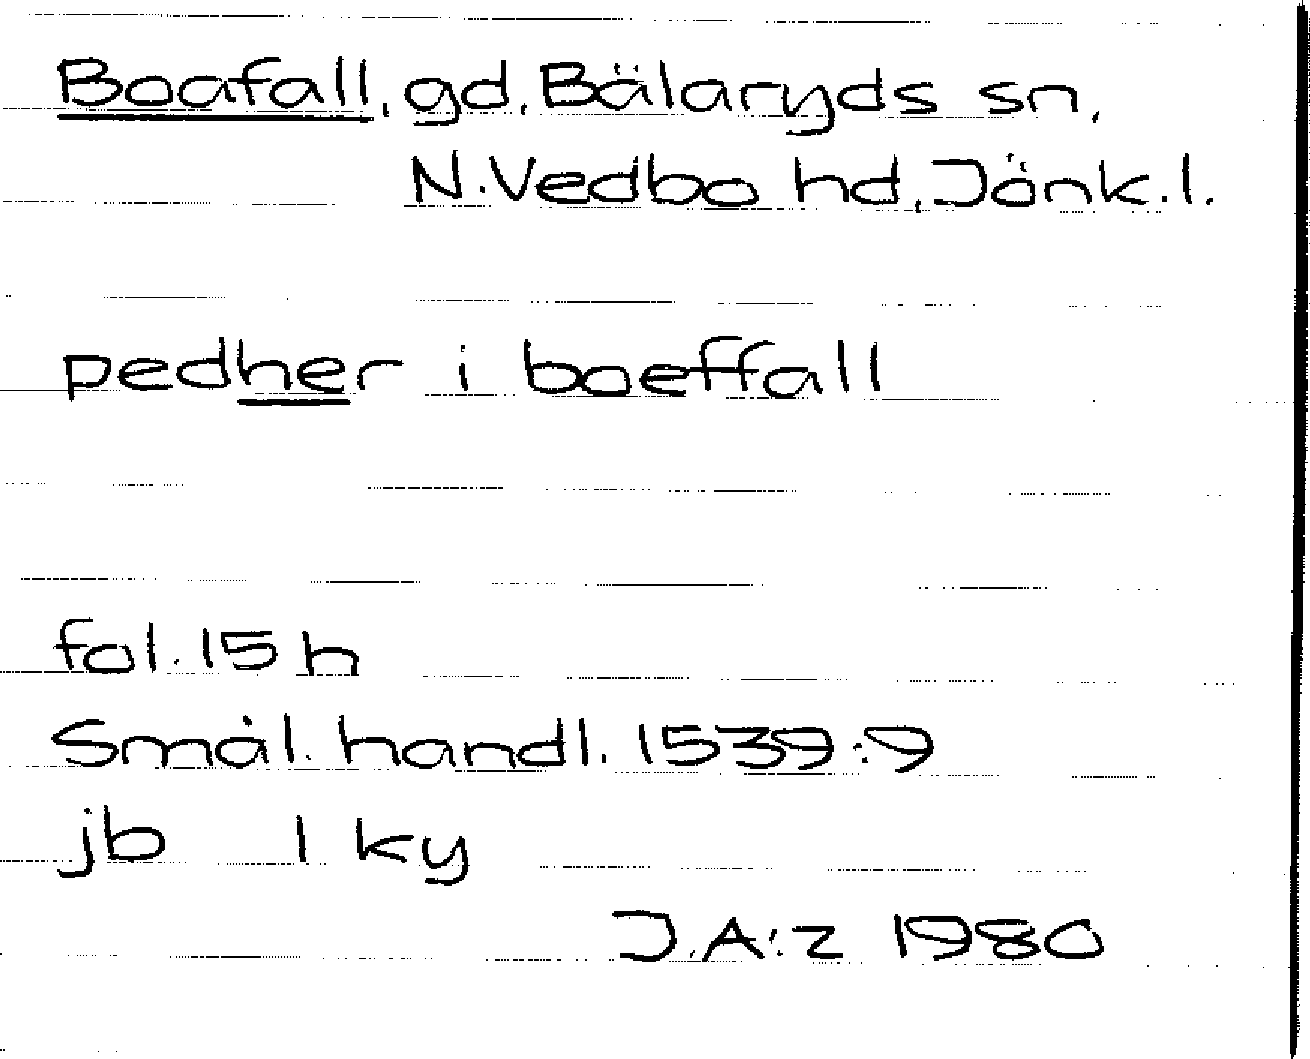 Boafall, gd, Bälaryds sn,
N.Vedbo hd, Jönk.l.
pedher i boeffall
fol. 15 h
Smål. handl. 1539:9
jb 1 ky
J.A:z 1980